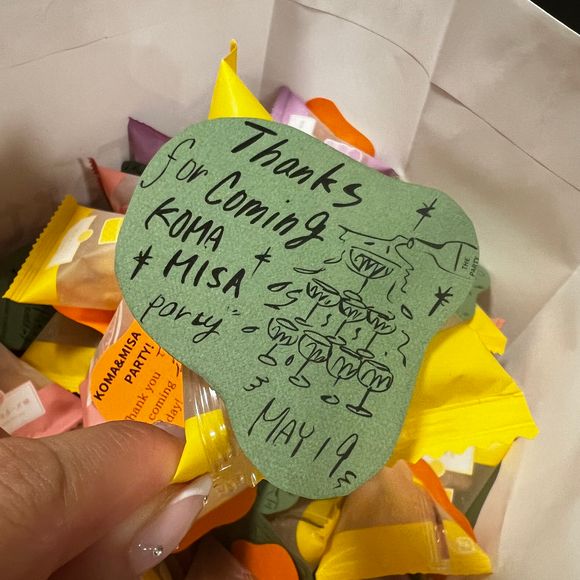 Thanks
for Coming
KOMA
MISA
party
THE
PARTY
MAY 19
KOMA&MISA
PARTY!
Thank you
coming
day!